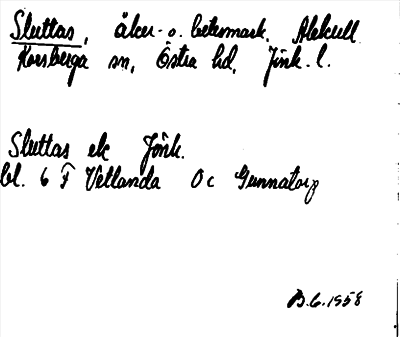 Sluttas, åker- o. betesmark. Alekull
Korsberga sn, Östra hd, Jönk. l.
Sluttas ek Jönk.
bl. 6 F Vetlanda Oc Gunnatorp
B.G. 1958